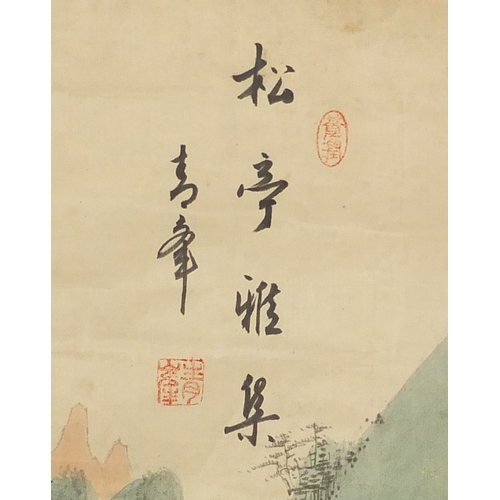 松亭雅集
青峯